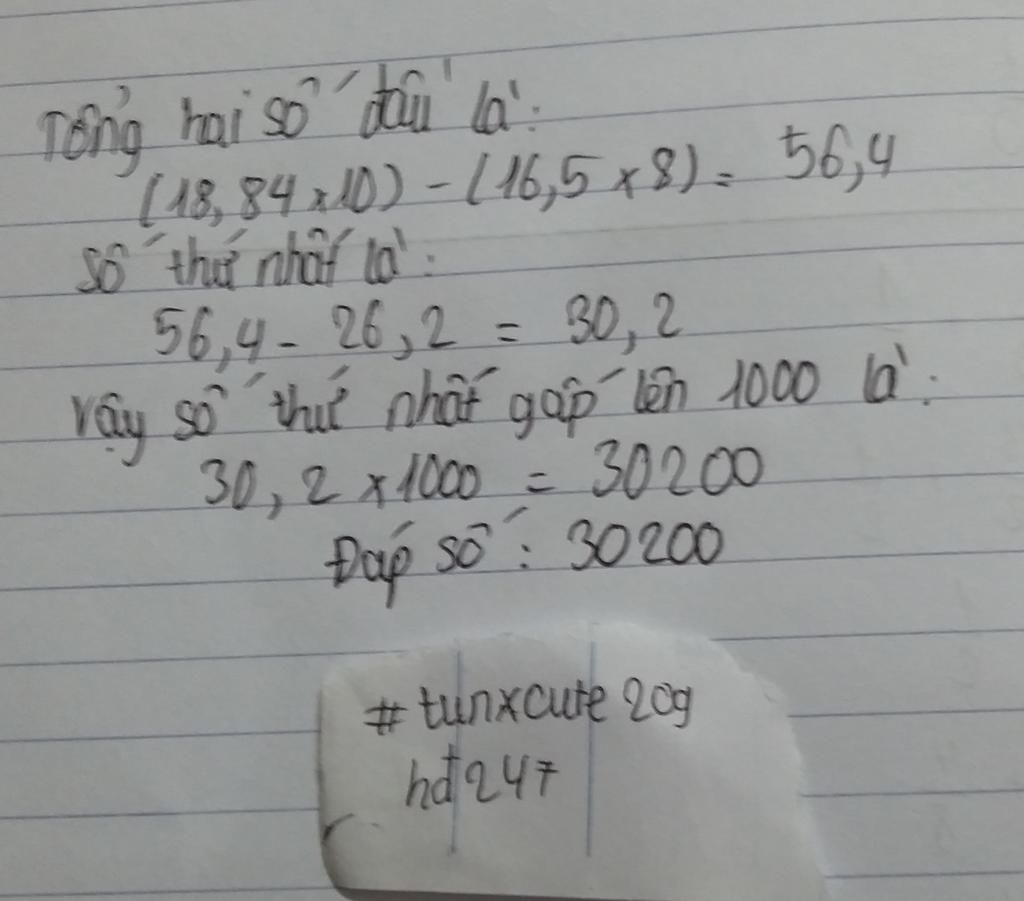 Tổng hai số đầu là:
(18,84 x 10) - (16,5 x 8) = 56,4
số thứ nhất là:
56,4 - 26,2 = 30,2
vậy số thứ nhất gấp lên 1000 là:
30,2 x 1000 = 30200
Đáp số: 30200
# tunxcute 20g
hđ247